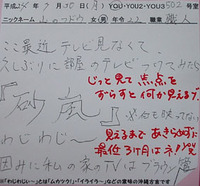 平成24年7月30日(月) YOU・YOU2・YOU3 502号室
ニックネーム 山のフドウ 女・男 年令22 職業 職人
ここ最近テレビ見なくて、
久しぶりに部屋のテレビつけてみたら
じっと見て焦点を
ずらすと何か見えるブ
『砂嵐』
わじわじ〜
見えるまであきらめずに
最低3ヶ月はネ!
因みに私の家のTVはブラウン管
※「わじわじぃ〜」とは「ムカつく」「イライラ〜」などの意味の沖縄方言です